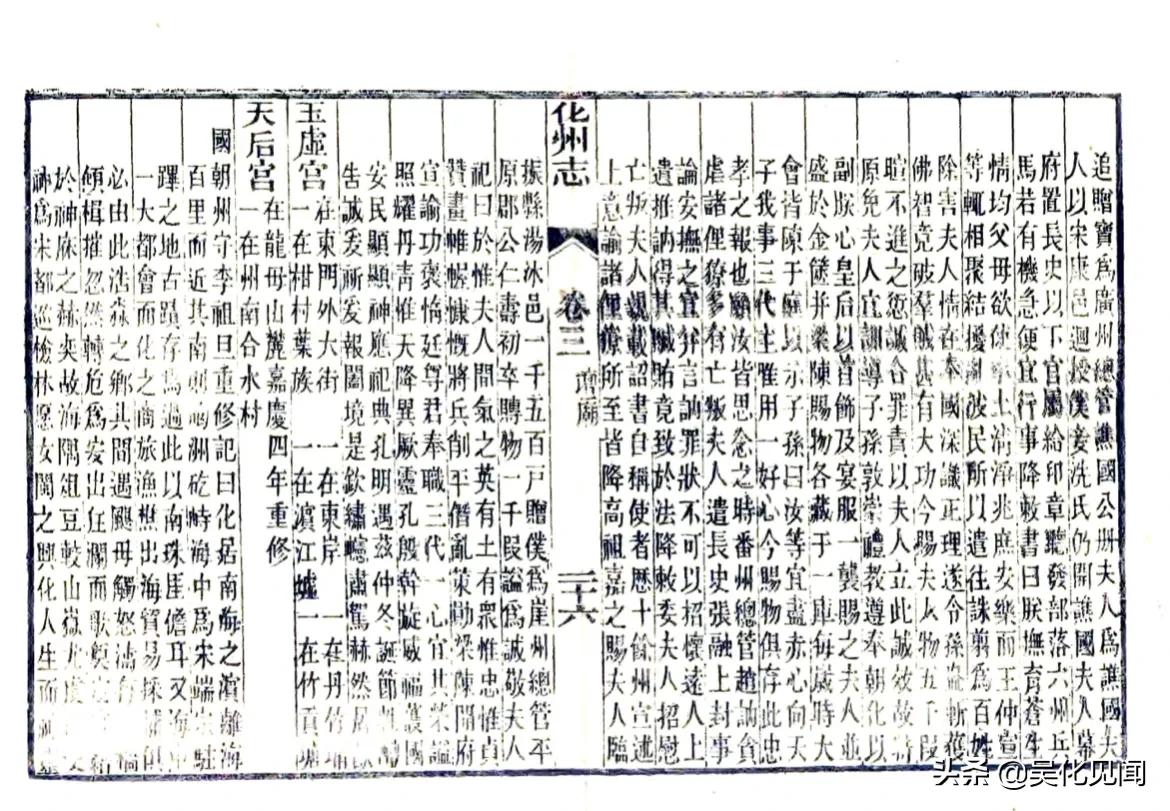 追贈寶爲廣州總管譙國公册夫人爲譙國夫
人以宋康邑迴授僕妾洗氏仍開譙國夫人幕
府置長史以下官屬給印章聽發部落六州兵
馬若有機急便宜行事降敕書曰朕撫育蒼生
情均父母欲使率土清淨兆庶安樂而王仲宣
等輒相聚結擾亂波民所以遣往誅剪爲百姓
除害夫人情在奉國深識正理遂令孫盎斬獲
佛智竟破羣賊甚有大功今賜夫人物五千段
暄不進之愆誠合罪責以夫人立此誠效故特
原免夫人宜訓導子孫敦崇禮教遵奉朝化以
副朕心皇后以首飾及宴服一襲賜之夫人並
盛於金篋并梁陳賜物各藏于一庫每歲時大
會皆陳于庭以示子孫曰汝等宜盡赤心向天
子我事三代主唯用一好心今賜物俱存此忠
孝之報也願汝皆思念之時番州總管趙訥貪
虐諸俚獠多有亡叛夫人遣長史張融上封事
論安撫之宜并言訥罪狀不可以招懷遠人上
遣推訥得其贓賄竟致於法降敕委夫人招慰
亡叛夫人親載詔書自稱使者歷十餘州宣述
上意諭諸俚獠所至皆降高祖嘉之賜夫人臨
化州志 卷三 廟 三十六
振縣湯沐邑一千五百戸贈僕爲崖州總管平
原郡公仁壽初卒賻物一千段謚爲誠敬夫人
祀曰於惟夫人間氣之英有土有衆惟忠惟貞
贊畫帷幄慷慨將兵削平僭亂策勳梁陳開府
宣諭功褒恤廷尊君奉職三代一心宜其榮謚
照耀丹靑惟天降異厥靈孔殷幹旋威幅護國
安民顯顯神應祀典孔明遇茲仲冬誕節
告誠爰祈爰報闔境是欽繡幰肅駕赫然
玉虛宮 一在東門外大街 一在東岸 一在丹竹
一在柑村葉族 一在濵江墟 一在竹
天后宮 一在州南合水村
在龍母山麓嘉慶四年重修
國朝州守李祖旦重修記曰化居南海之濵離海
百里而近其南則硇洲矻峙海中爲宋端宗駐
蹕之地古蹟存焉過此以南珠崖儋耳又海中
一大都會而化之商旅漁樵出海貿易採
必由此浩淼之鄉其間遇颶母觸怒濤有
傾楫摧忽然轉危爲安出狂瀾而歌
於神庥之赫奕故海隅俎豆較山嶽尤
神爲宋都巡檢林愿女閩之興化人生而
头条 @吴化见闻